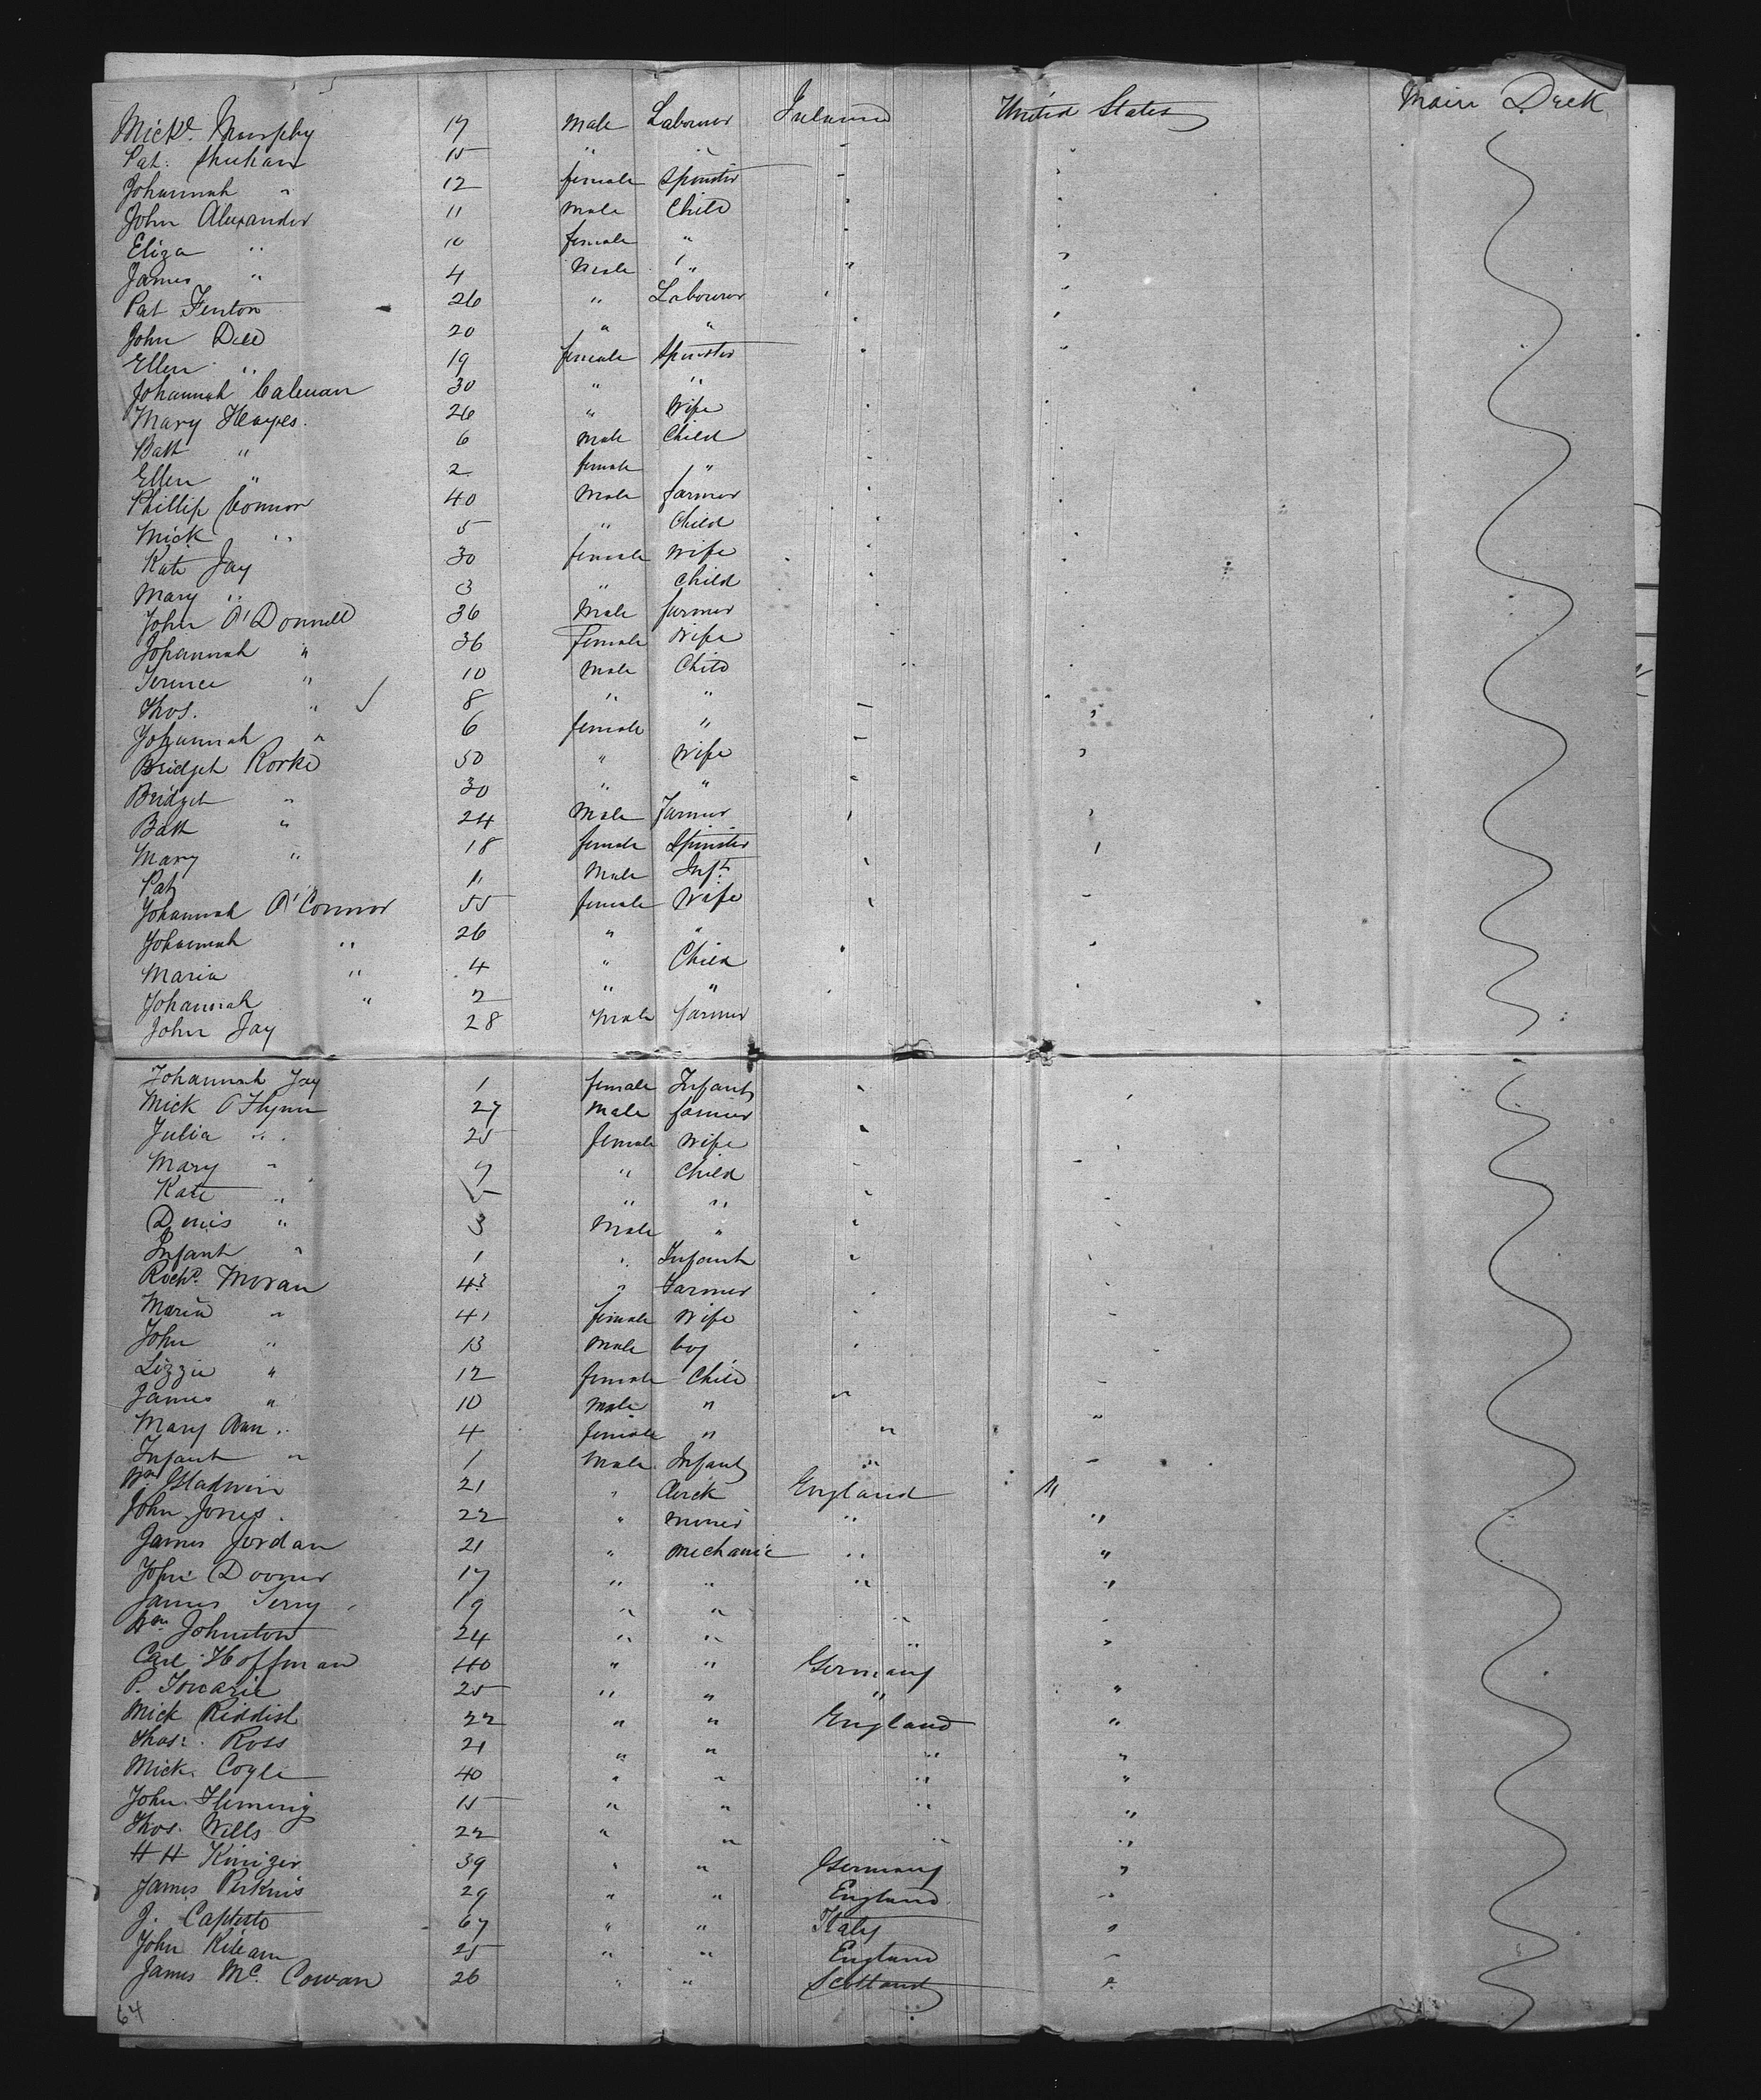 Mickl Murphy 17 Male Labourer Ireland United States Main Deck
Pat. Shuhan 15 " " " "
Johannah " 12 female Spinster " "
John Alexander 11 Male Child " "
Eliza " 10 female " " "
James " 4 Male " " "
Pat Fenton 26 " Labourer " "
John Dee 20 " " " "
Ellen " 19 female Spinster " "
Johannah 30 " "
Mary Heayes. 26 " Wife " "
Batt " 6 Male Child " "
Ellen " 2 female " " "
Phillip Connor 40 Male farmer " "
Mick " 5 " Child " "
Kate Jay 30 female Wife " "
Mary " 3 " Child "
John O'Donnell 36 Male farmer "
Johannah " 36 Female Wife "
Terence " 10 Male Child " "
Thos. " 8 " " "
Johannah " 6 female " " "
Bridget Rorke 50 " Wife " "
Bridget " 30 " " "
Batt " 24 Male Farmer " "
Mary " 18 female Spinster "
Pat 11 Male Inft "
Johannah O'Connor 55 female Wife " "
Johannah " 26 " "
Maria " 4 " Child " "
Johannah " 2 " " " "
John Jay 28 Male farmer
Johannah Jay 1 female Infant " "
Mick O'Flynn 27 Male farmer "
Julia " 25 female Wife " "
Mary " 7 " Child " "
Kate " 5 " " " "
Denis " 3 Male " " "
Infant " 1 " Infant " "
Richd. Moran 43 " Farmer " "
Maria " 41 female Wife " "
John " 13 Male boy "
Lizzie " 12 female Child "
James " 10 Male " " "
Mary Ann " 4 female " "
Infant " 1 Male Infant " "
Wm Gladwin 21 " Clerck England "
John Jones. 22 " Miner " "
James Jordan 21 " Mechanic " "
John Doover 17 " " " "
James Terry 19 " " " "
Wm Johnston 24 " " " "
Carl Hoffman 40 " " Germany
P. 25 " " " "
Mick Riddish 22 " " England "
Thos. Ross 21 " " " "
Mick. Coyle 40 " " " "
John Fleming 15 " " " "
Thos. Wills 22 " " " "
H H Kinizer 39 " " Germany "
James Perkins 29 " " England "
J. Captisto 67 " " Italy "
John Kileam 25 " " England "
James Mc. Cowan 26 " " Scotland "
64